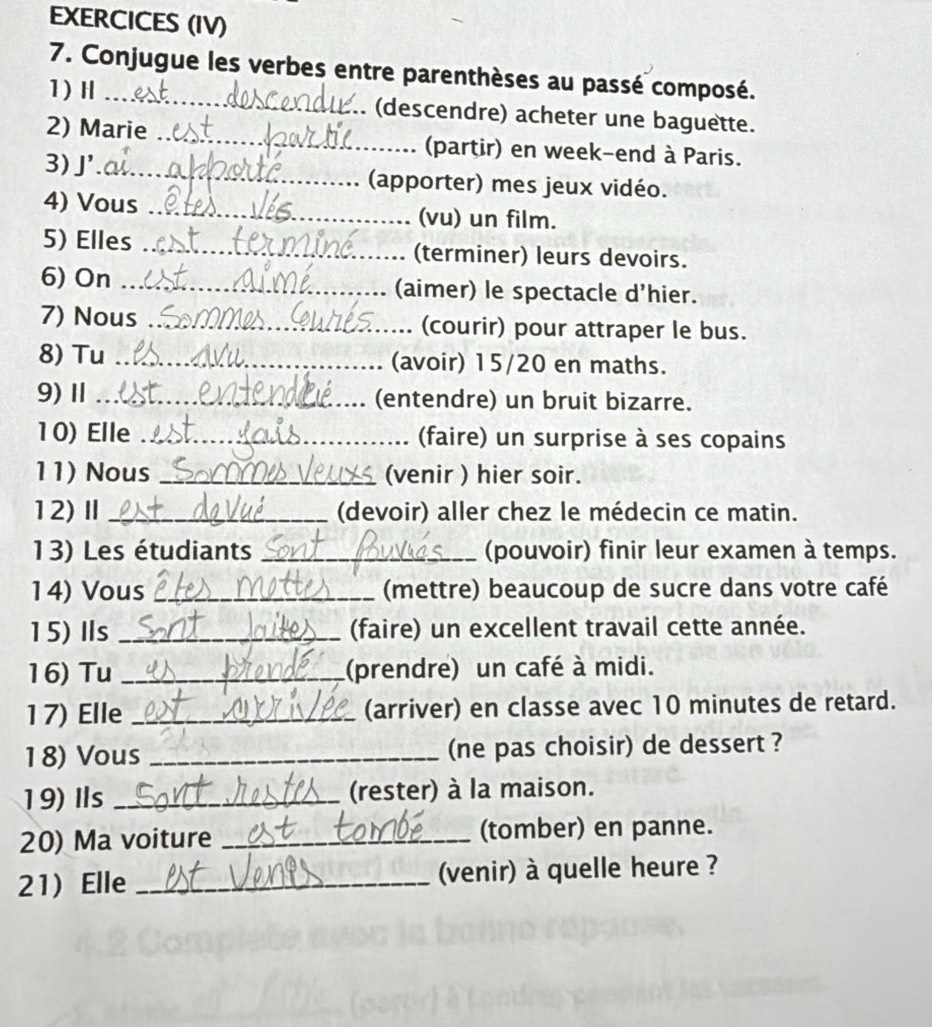 EXERCICES (IV)
7. Conjugue les verbes entre parenthèses au passé composé.
1) Il est descendu (descendre) acheter une baguette.
2) Marie est partie (partir) en week-end à Paris.
3) J'ai apporté (apporter) mes jeux vidéo.
4) Vous êtes vés (vu) un film.
5) Elles est terminé (terminer) leurs devoirs.
6) On est aimé (aimer) le spectacle d'hier.
7) Nous Sommes Courés (courir) pour attraper le bus.
8) Tu es avu (avoir) 15/20 en maths.
9) Il est (entendre) un bruit bizarre.
10) Elle est fais (faire) un surprise à ses copains
11) Nous Sommes Veuxs (venir ) hier soir.
12) Il est devué (devoir) aller chez le médecin ce matin.
13) Les étudiants Sont Pouvués (pouvoir) finir leur examen à temps.
14) Vous êtes mettes (mettre) beaucoup de sucre dans votre café
15) Ils Sont faites (faire) un excellent travail cette année.
16) Tu es prendé (prendre) un café à midi.
17) Elle est arrivée (arriver) en classe avec 10 minutes de retard.
18) Vous êtes (ne pas choisir) de dessert ?
19) Ils Sont restes (rester) à la maison.
20) Ma voiture est tombé (tomber) en panne.
21) Elle est (venir) à quelle heure ?